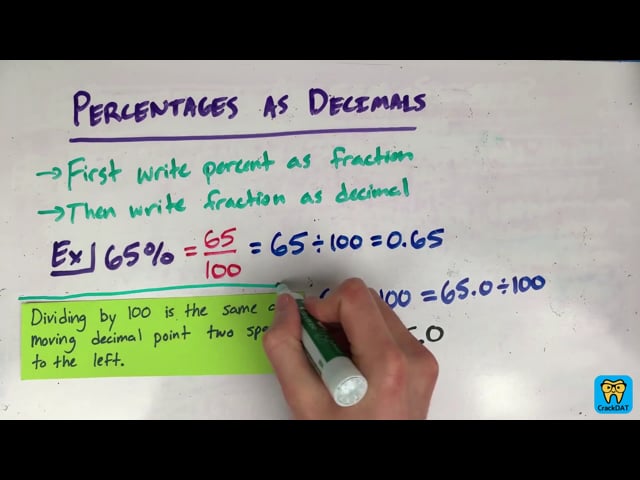 PERCENTAGES AS DECIMALS
→ First write percent as fraction
→ Then write fraction as decimal
Ex 65% = 65/100 = 65 ÷ 100 = 0.65
Dividing by 100 is the same
moving decimal point two
to the left.
100 = 65.0 ÷ 100
.0
CrackDAT